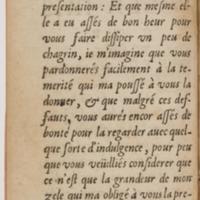 presentation: Et que mesme el-
le a eu assés de bon heur pour
vous faire dissiper vn peu de
chagrin, ie m'imagine que vous
pardonnerés facilement à la te-
merité qui ma poussé à vous la
donner, & que malgré ces def-
fauts, vous aurés encor assés de
bonté pour la regarder auec quel-
que sorte d'indulgence, pour peu
que vous veüilliés considerer que
ce n'est que la grandeur de mon
zele qui ma obligé à vous la pre-